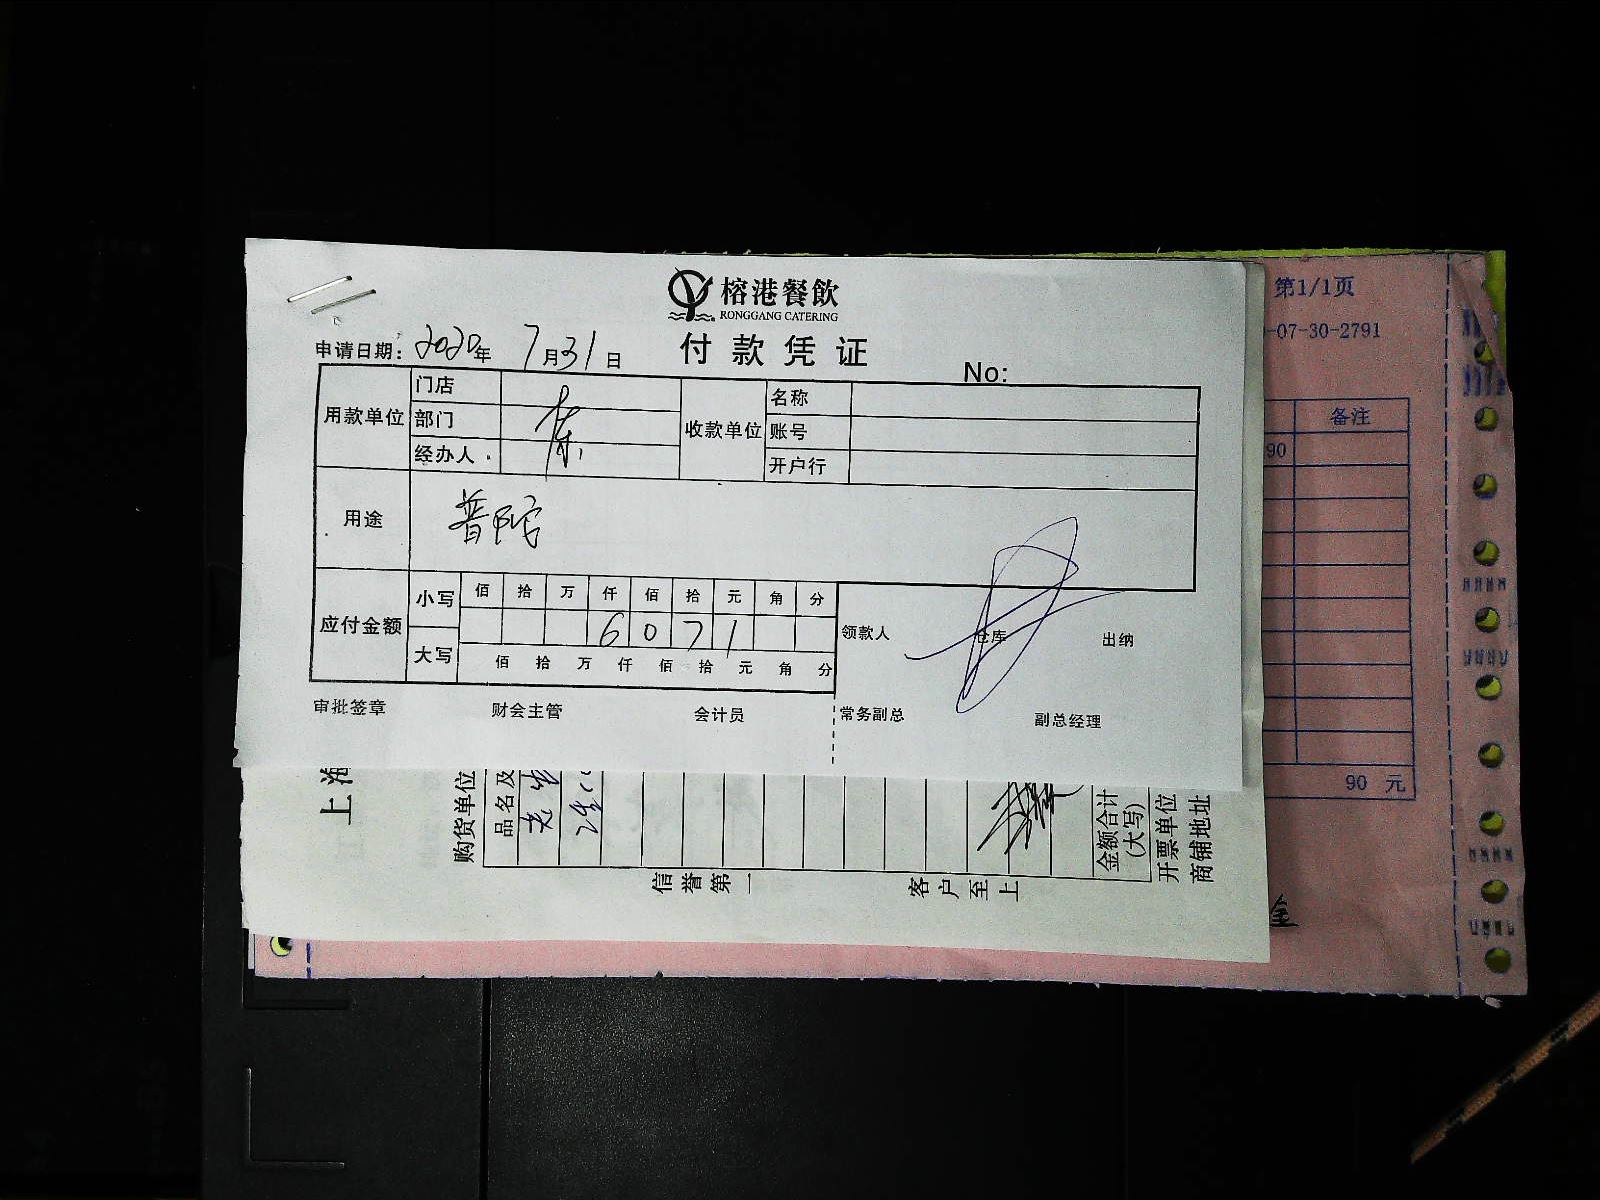 榕港餐飲
RONGGANG CATERING
付款凭证
申请日期：2020年 7月31日
No:
用款单位 门店
部门
经办人
收款单位 名称
账号
开户行
用途 普陀
应付金额 小写 佰 拾 万 仟 佰 拾 元 角 分
6 0 7 1
大写 佰 拾 万 仟 佰 拾 元 角 分
领款人 仓库 出纳
审批签章 财会主管 会计员 常务副总 副总经理
第1/1页
-07-30-2791
备注
90
90 元
上海
购货单位
品名及
金额合计
(大写)
开票单位
商铺地址
信誉第一 客户至上